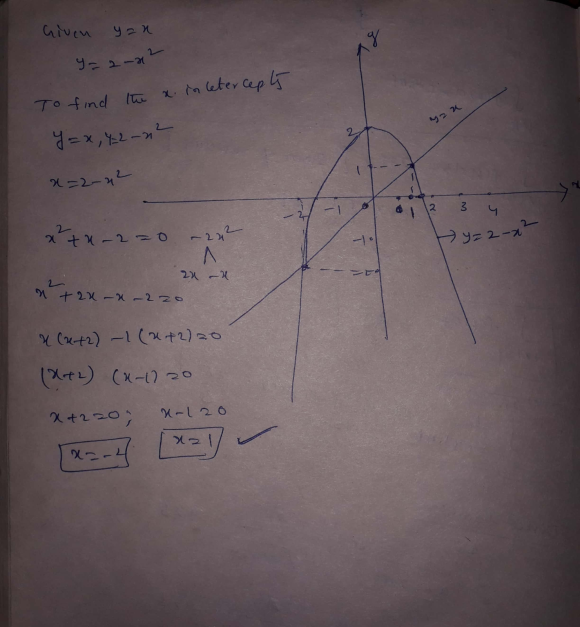 Given y=x
y=2-x²
To find the x. intetercepts
y=x, y=2-x²
x=2-x²
x²+x-2=0 -2x²
2x -x
x²+2x-x-2=0
x(x+2) -1(x+2)=0
(x+2) (x-1)=0
x+2=0; x-1=0
x=-2 x=1
y
y=x
2
1
-2 -1 0 1 2 3 4 x
-1
-2
→y=2-x²